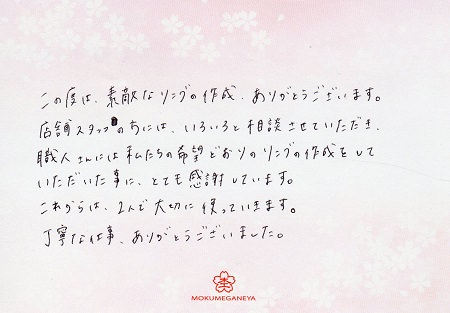 この度は、素敵なリングの作成、ありがとうございます。
店舗スタッフの方には、いろいろと相談させていただき、
職人さんには私たちの希望どおりのリングの作成をして
いただいた事に、とても感謝しています。
これからは、2人で大切に使っていきます。
丁寧な仕事、ありがとうございました。
MOKUMEGANEYA